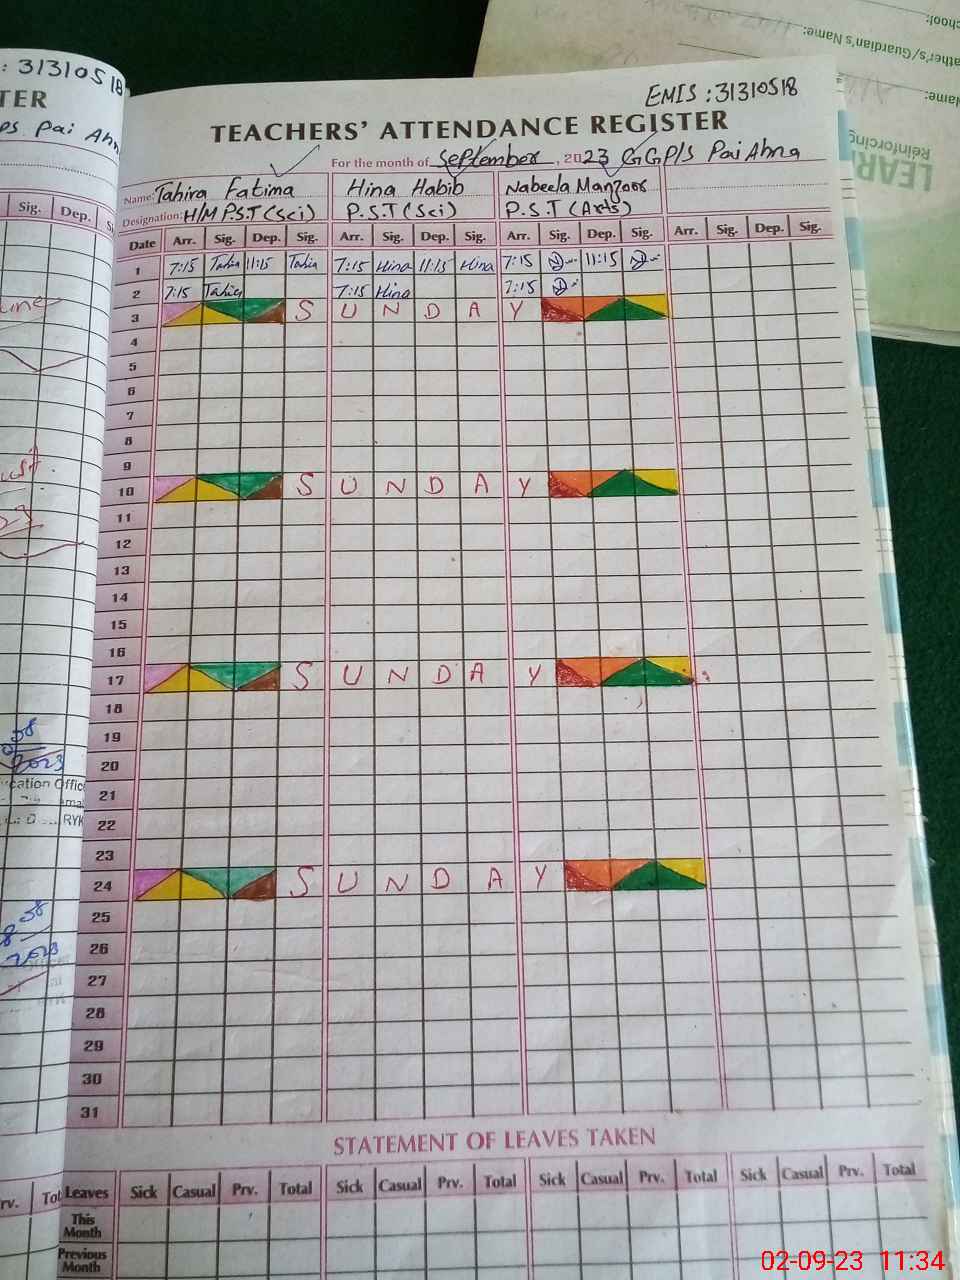 : 31310518
TER
PS Pai Ahna
Sig. Dep. S
EMIS : 31310518
TEACHERS' ATTENDANCE REGISTER
For the month of September, 2023 GGP/S Pai Ahna
Name: Tahira Fatima Hina Habib Nabeela Manzoor
Designation: H/M P.S.T (Sci) P.S.T (Sci) P.S.T (Arts)
Date Arr. Sig. Dep. Sig. Arr. Sig. Dep. Sig. Arr. Sig. Dep. Sig. Arr. Sig. Dep. Sig.
1 7:15 Tahira 11:15 Tahira 7:15 Hina 11:15 Hina 7:15 11:15
2 7:15 Tahira 7:15 Hina 7:15
3 S U N D A Y
4
5
6
7
8
9
10 S U N D A Y
11
12
13
14
15
16
17 S U N D A Y
18
19
20
21
22
23
24 S U N D A Y
25
26
27
28
29
30
31
STATEMENT OF LEAVES TAKEN
Leaves Sick Casual Prv. Total Sick Casual Prv. Total Sick Casual Prv. Total Sick Casual Prv. Total
This Month
Previous Month
2023
cation Offic
RYK
2023
rv. Tot
chool:
ather's/Guardian's Name:
Name:
LEAR
Reinforcing
02-09-23 11:34